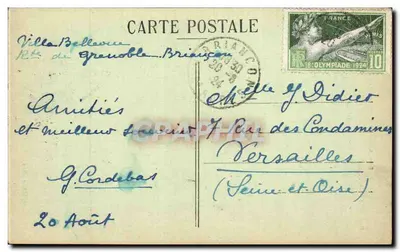 CARTE POSTALE
Villa Bellevue
Rte de Grenoble Briançon
Amitiés
et meilleur souvenir
G. Cordebas
20 Août
BRIANÇON
FRANCE
VIIIE OLYMPIADE 1924
10
Melle Y Didier
7 Rue des Condamines
Versailles
(Seine-et-Oise)